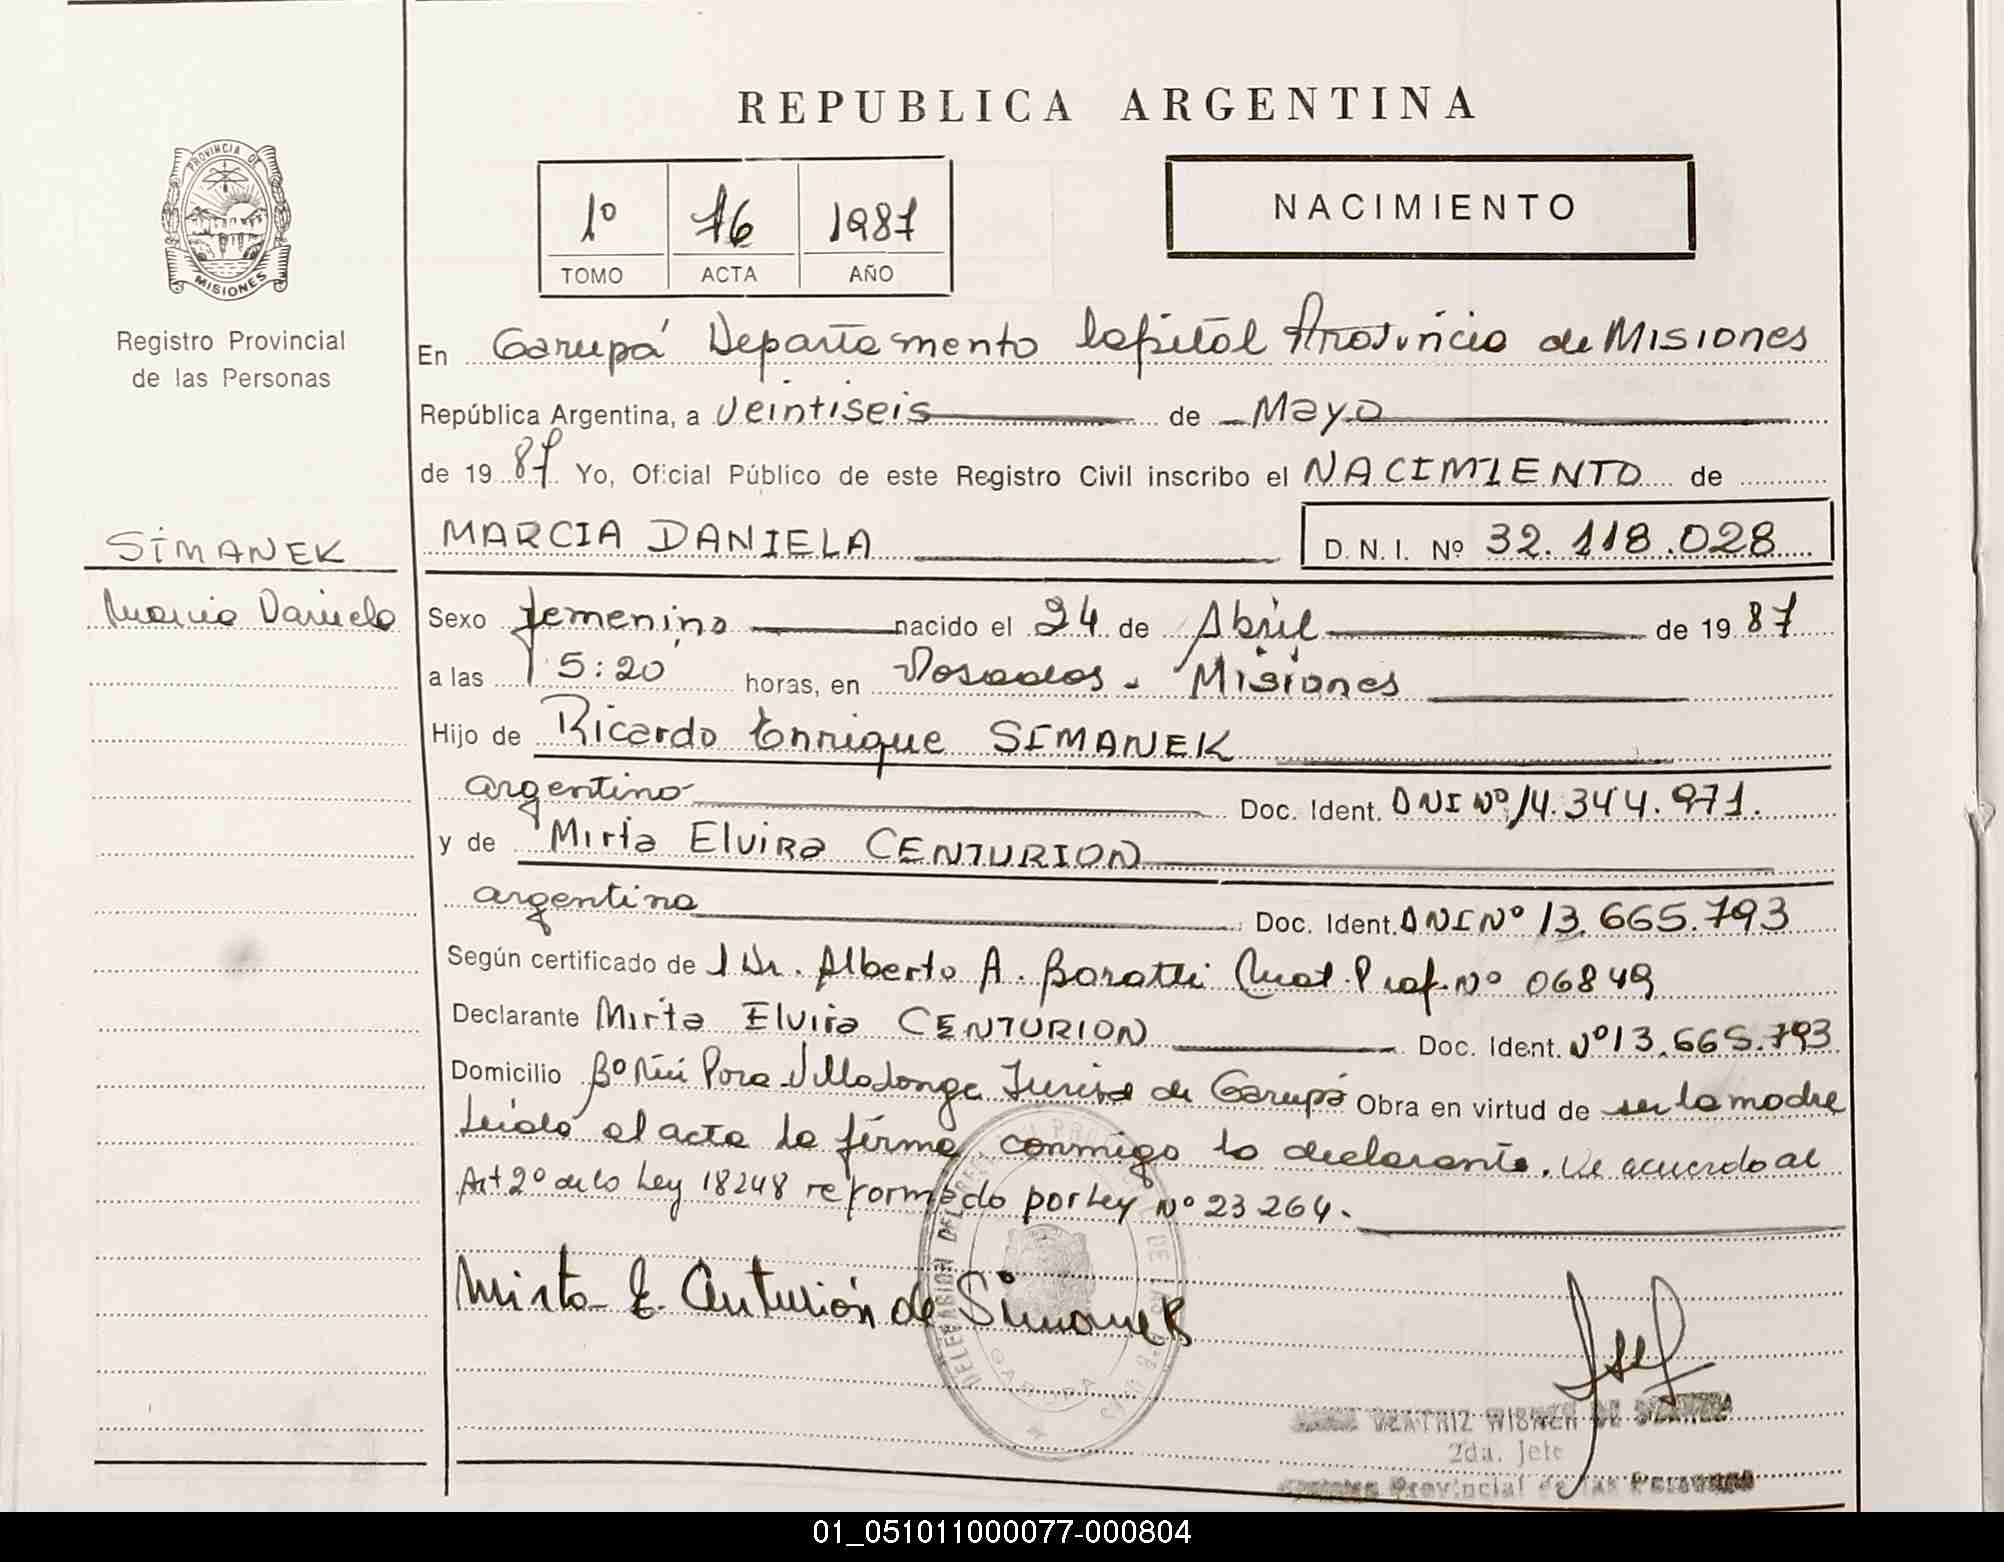 REPUBLICA ARGENTINA
PROVINCIA DE
MISIONES
Registro Provincial
de las Personas
1º 76 1987
TOMO ACTA AÑO
NACIMIENTO
En Garupá Departamento Capital Provincia de Misiones
República Argentina, a veintiseis de Mayo
de 19 87 Yo, Oficial Público de este Registro Civil inscribo el NACIMIENTO de
SIMANEK
Marcia Daniela
MARCIA DANIELA D. N. I. Nº 32.118.028
Sexo femenino nacido el 24 de Abril de 19 87
a las 15:20 horas, en Posadas - Misiones
Hijo de Ricardo Enrique SIMANEK
argentino Doc. Ident. DNI Nº 14.344.971.
y de Mirta Elvira CENTURION
argentina Doc. Ident. DNI Nº 13.665.793
Según certificado de l Dr. Alberto A. Boratti Mat. Prof. Nº 06849
Declarante Mirta Elvira CENTURION Doc. Ident. Nº 13.665.793
Domicilio Bº Ñu Pora Villalonga Jurisd de Garupá Obra en virtud de ser la madre
Leída el acta la firma conmigo la declarante. De acuerdo al
Art 2º de la Ley 18248 reformado por Ley Nº 23264.
Mirta E. Centurión de Simanek
GARUPA
BEATRIZ DE
2da. Jefe
Provincial de las Personas
01_051011000077-000804